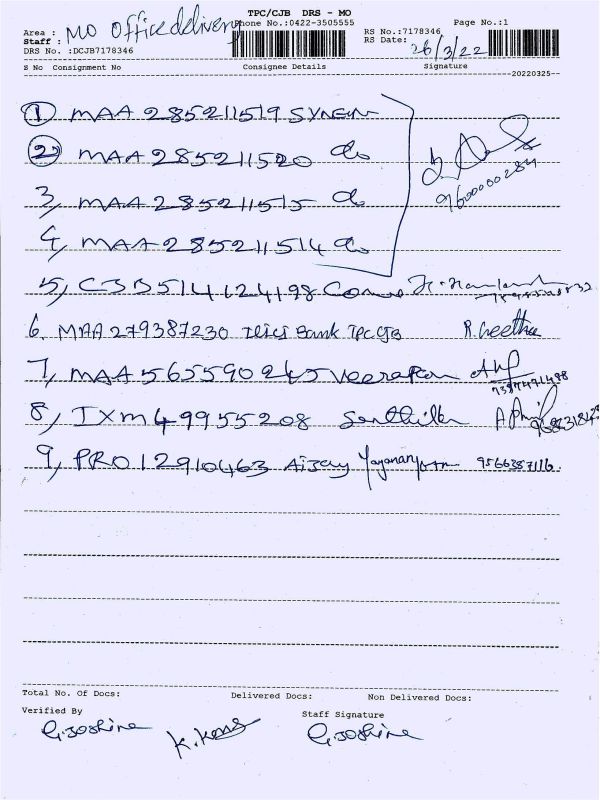 TPC/CJB DRS - MO
Area : MO Office delivery Phone No.:0422-3505555 Page No.:1
Staff : RS No.:7178346
DRS No. :DCJB7178346 RS Date: 26/3/22
S No Consignment No Consignee Details Signature
20220325--
1 MAA 285211519
2 MAA 285211520 do
3, MAA 285211515 do
4, MAA 285211514 do
9600000284
5, CJB514124198
6. MAA 279387230 ICICI Bank TPC CJB R. Geetha
7, MAA 565590245 Veerapan
7397471498
8, IXM49955208 Senthil
9, PRO12910463 Aijay 9566387116.
Total No. Of Docs: Delivered Docs: Non Delivered Docs:
Verified By Staff Signature
G.Joshine G.Joshine